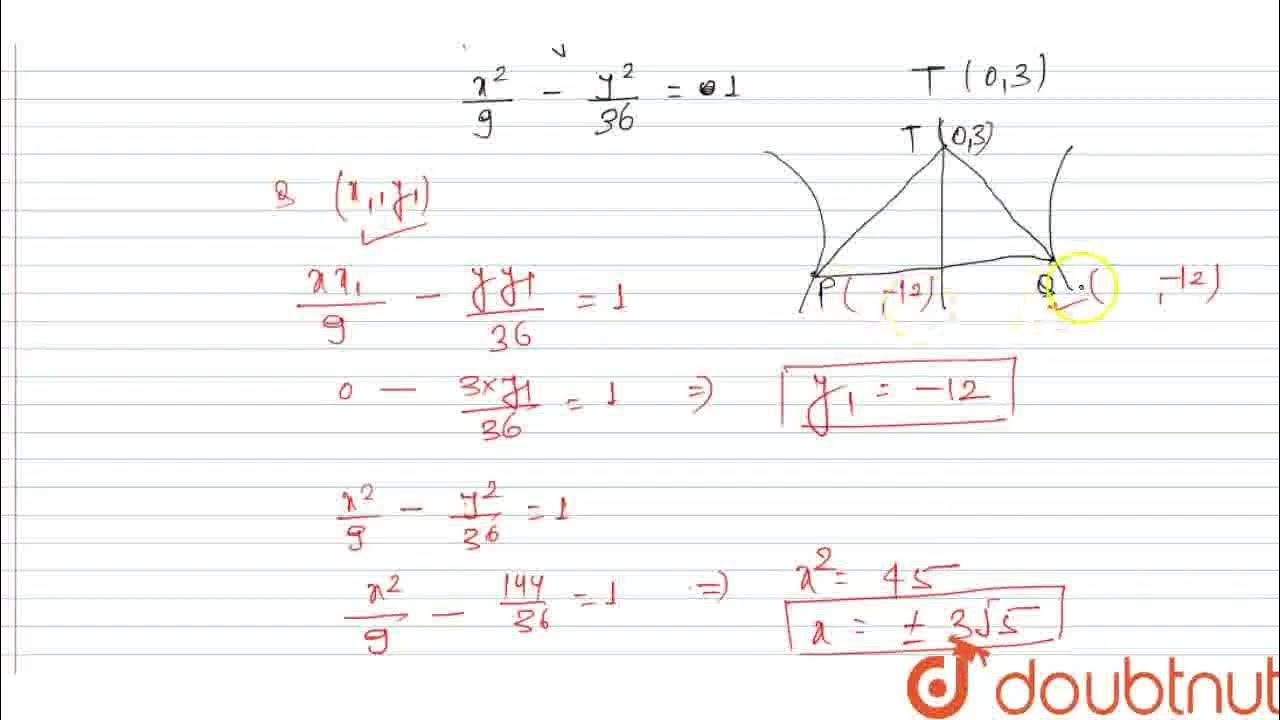 x²/9 - y²/36 = 1
T (0,3)
T (0,3)
(x₁, y₁)
xx₁/9 - yy₁/36 = 1
P ( , -12)
Q ( , -12)
0 - 3×y₁/36 = 1 ⇒ y₁ = -12
x²/9 - y²/36 = 1
x²/9 - 144/36 = 1 ⇒ x² = 45
x = ± 3√5
doubtnut